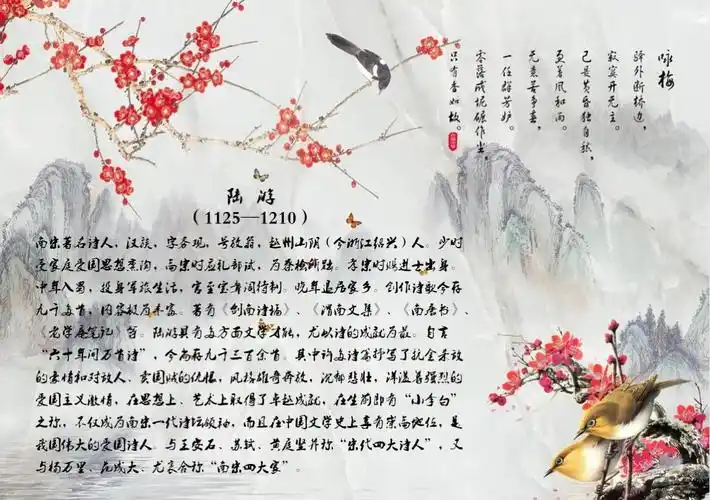 咏梅
驿外断桥边，
寂寞开无主。
已是黄昏独自愁，
更著风和雨。
无意苦争春，
一任群芳妒。
零落成泥碾作尘，
只有香如故。
陆 游
（1125—1210）
南宋著名诗人，汉族，字务观，号放翁，越州山阴（今浙江绍兴）人。少时
受家庭爱国思想熏陶，高宗时应礼部试，为秦桧所黜。孝宗时赐进士出身。
中年入蜀，投身军旅生活，官至宝章阁待制。晚年退居家乡。创作诗歌今存
九千多首，内容极为丰富。著有《剑南诗稿》、《渭南文集》、《南唐书》、
《老学庵笔记》等。陆游具有多方面文学才能，尤以诗的成就为最。自言
“六十年间万首诗”，今尚存九千三百余首。其中许多诗篇抒写了抗金杀敌
的豪情和对敌人、卖国贼的仇恨，风格雄奇奔放，沉郁悲壮，洋溢着强烈的
爱国主义激情，在思想上、艺术上取得了卓越成就，在生前即有“小李白”
之称，不仅成为南宋一代诗坛领袖，而且在中国文学史上享有崇高地位，是
我国伟大的爱国诗人。与王安石、苏轼、黄庭坚并称“宋代四大诗人”，又
与杨万里、范成大、尤袤合称“南宋四大家”。